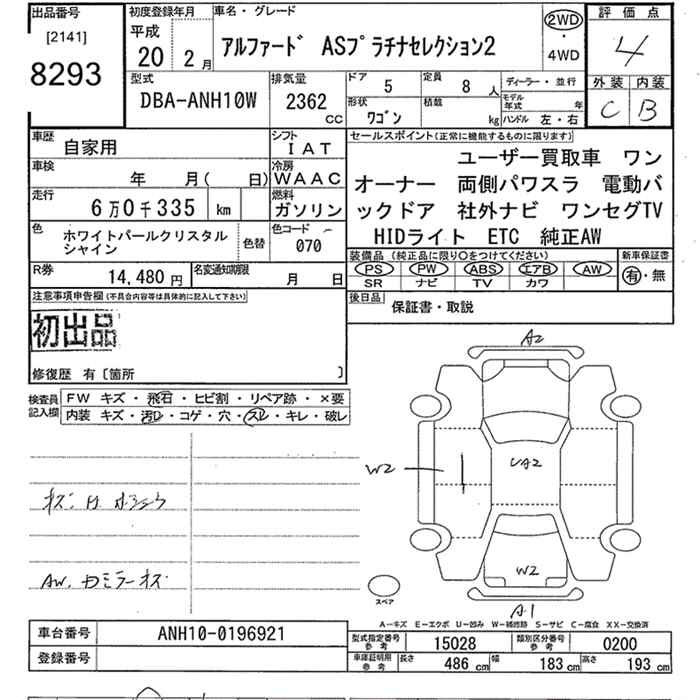 出品番号
[2141]
8293
初度登録年月
平成
20 2月
車名・グレード
アルファード ASプラチナセレクション2
2WD
・
4WD
評価点
4
型式
DBA-ANH10W
排気量
2362
CC
ドア
5
定員
8人
形状
ワゴン
積載
kg
ディーラー・並行
モデル年式 年
ハンドル 左・右
外装 内装
C B
車歴
自家用
シフト
IAT
車検
年 月( 日)
冷房
WAAC
走行
6万0千335 km
燃料
ガソリン
色
ホワイトパールクリスタル
シャイン
色替
色コード
070
R券
14,480円
名変通知期限
月 日
セールスポイント(正常に機能するものに限ります)
ユーザー買取車 ワン
オーナー 両側パワスラ 電動バ
ックドア 社外ナビ ワンセグTV
HIDライト ETC 純正AW
装備品 (純正品に限り○をつけてください)
PS PW ABS エアB AW
SR ナビ TV カワ
新車保証書
有・無
後日品
保証書・取説
注意事項申告欄(不具合内容等は具体的に記入して下さい)
初出品
修復歴 有〔箇所 〕
検査員
記入欄
FW キズ・飛石・ヒビ割・リペア跡・×要
内装 キズ・汚れ・コゲ・穴・スレ・キレ・破レ
A2
W2
UA2
W2
A1
スペア
AW.
A−キズ E−エクボ U−凹み W−補修跡 S−サビ C−腐食 XX−交換済
車台番号
ANH10-0196921
登録番号
型式指定番号
参考
15028
類別区分番号
参考
0200
車庫証明用
参考
長さ 486 cm 幅 183 cm 高さ 193 cm